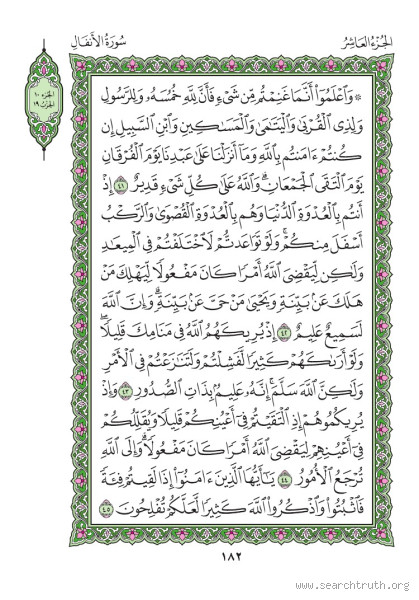 الجزء العاشر
سورة الأنفال
الجزء ١٠
الحزب ١٩
۞ وَٱعْلَمُوٓا۟ أَنَّمَا غَنِمْتُم مِّن شَىْءٍ فَأَنَّ لِلَّهِ خُمُسَهُۥ وَلِلرَّسُولِ
وَلِذِى ٱلْقُرْبَىٰ وَٱلْيَتَـٰمَىٰ وَٱلْمَسَـٰكِينِ وَٱبْنِ ٱلسَّبِيلِ إِن
كُنتُمْ ءَامَنتُم بِٱللَّهِ وَمَآ أَنزَلْنَا عَلَىٰ عَبْدِنَا يَوْمَ ٱلْفُرْقَانِ
يَوْمَ ٱلْتَقَى ٱلْجَمْعَانِ ۗ وَٱللَّهُ عَلَىٰ كُلِّ شَىْءٍ قَدِيرٌ ٤١ إِذْ
أَنتُم بِٱلْعُدْوَةِ ٱلدُّنْيَا وَهُم بِٱلْعُدْوَةِ ٱلْقُصْوَىٰ وَٱلرَّكْبُ
أَسْفَلَ مِنكُمْ ۚ وَلَوْ تَوَاعَدتُّمْ لَٱخْتَلَفْتُمْ فِى ٱلْمِيعَـٰدِ ۙ
وَلَـٰكِن لِّيَقْضِىَ ٱللَّهُ أَمْرًا كَانَ مَفْعُولًا لِّيَهْلِكَ مَنْ
هَلَكَ عَنۢ بَيِّنَةٍ وَيَحْيَىٰ مَنْ حَىَّ عَنۢ بَيِّنَةٍ ۗ وَإِنَّ ٱللَّهَ
لَسَمِيعٌ عَلِيمٌ ٤٢ إِذْ يُرِيكَهُمُ ٱللَّهُ فِى مَنَامِكَ قَلِيلًا ۖ
وَلَوْ أَرَىٰكَهُمْ كَثِيرًا لَّفَشِلْتُمْ وَلَتَنَـٰزَعْتُمْ فِى ٱلْأَمْرِ
وَلَـٰكِنَّ ٱللَّهَ سَلَّمَ ۗ إِنَّهُۥ عَلِيمٌۢ بِذَاتِ ٱلصُّدُورِ ٤٣ وَإِذْ
يُرِيكُمُوهُمْ إِذِ ٱلْتَقَيْتُمْ فِىٓ أَعْيُنِكُمْ قَلِيلًا وَيُقَلِّلُكُمْ
فِىٓ أَعْيُنِهِمْ لِيَقْضِىَ ٱللَّهُ أَمْرًا كَانَ مَفْعُولًا ۗ وَإِلَى ٱللَّهِ
تُرْجَعُ ٱلْأُمُورُ ٤٤ يَـٰٓأَيُّهَا ٱلَّذِينَ ءَامَنُوٓا۟ إِذَا لَقِيتُمْ فِئَةً
فَٱثْبُتُوا۟ وَٱذْكُرُوا۟ ٱللَّهَ كَثِيرًا لَّعَلَّكُمْ تُفْلِحُونَ ٤٥
١٨٢
www.searchtruth.org